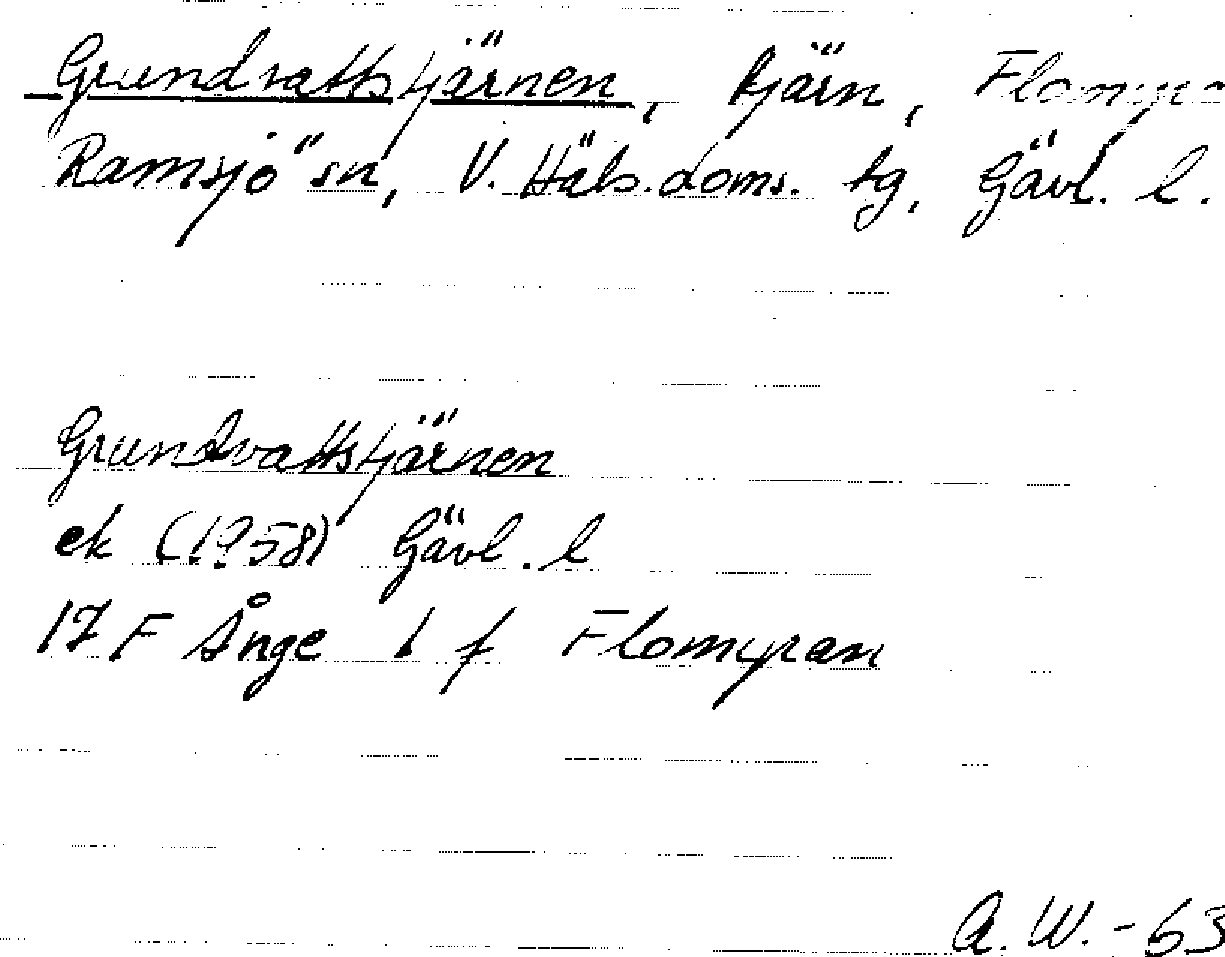 Grundvattstjärnen, tjärn, Flomyra
Ramsjö sn, V. Häls. doms. tg, Gävl. l.
Grundvattstjärnen
ek (1958) Gävl. l
17 F Ånge 1 f Flomyran
A. W. - 63